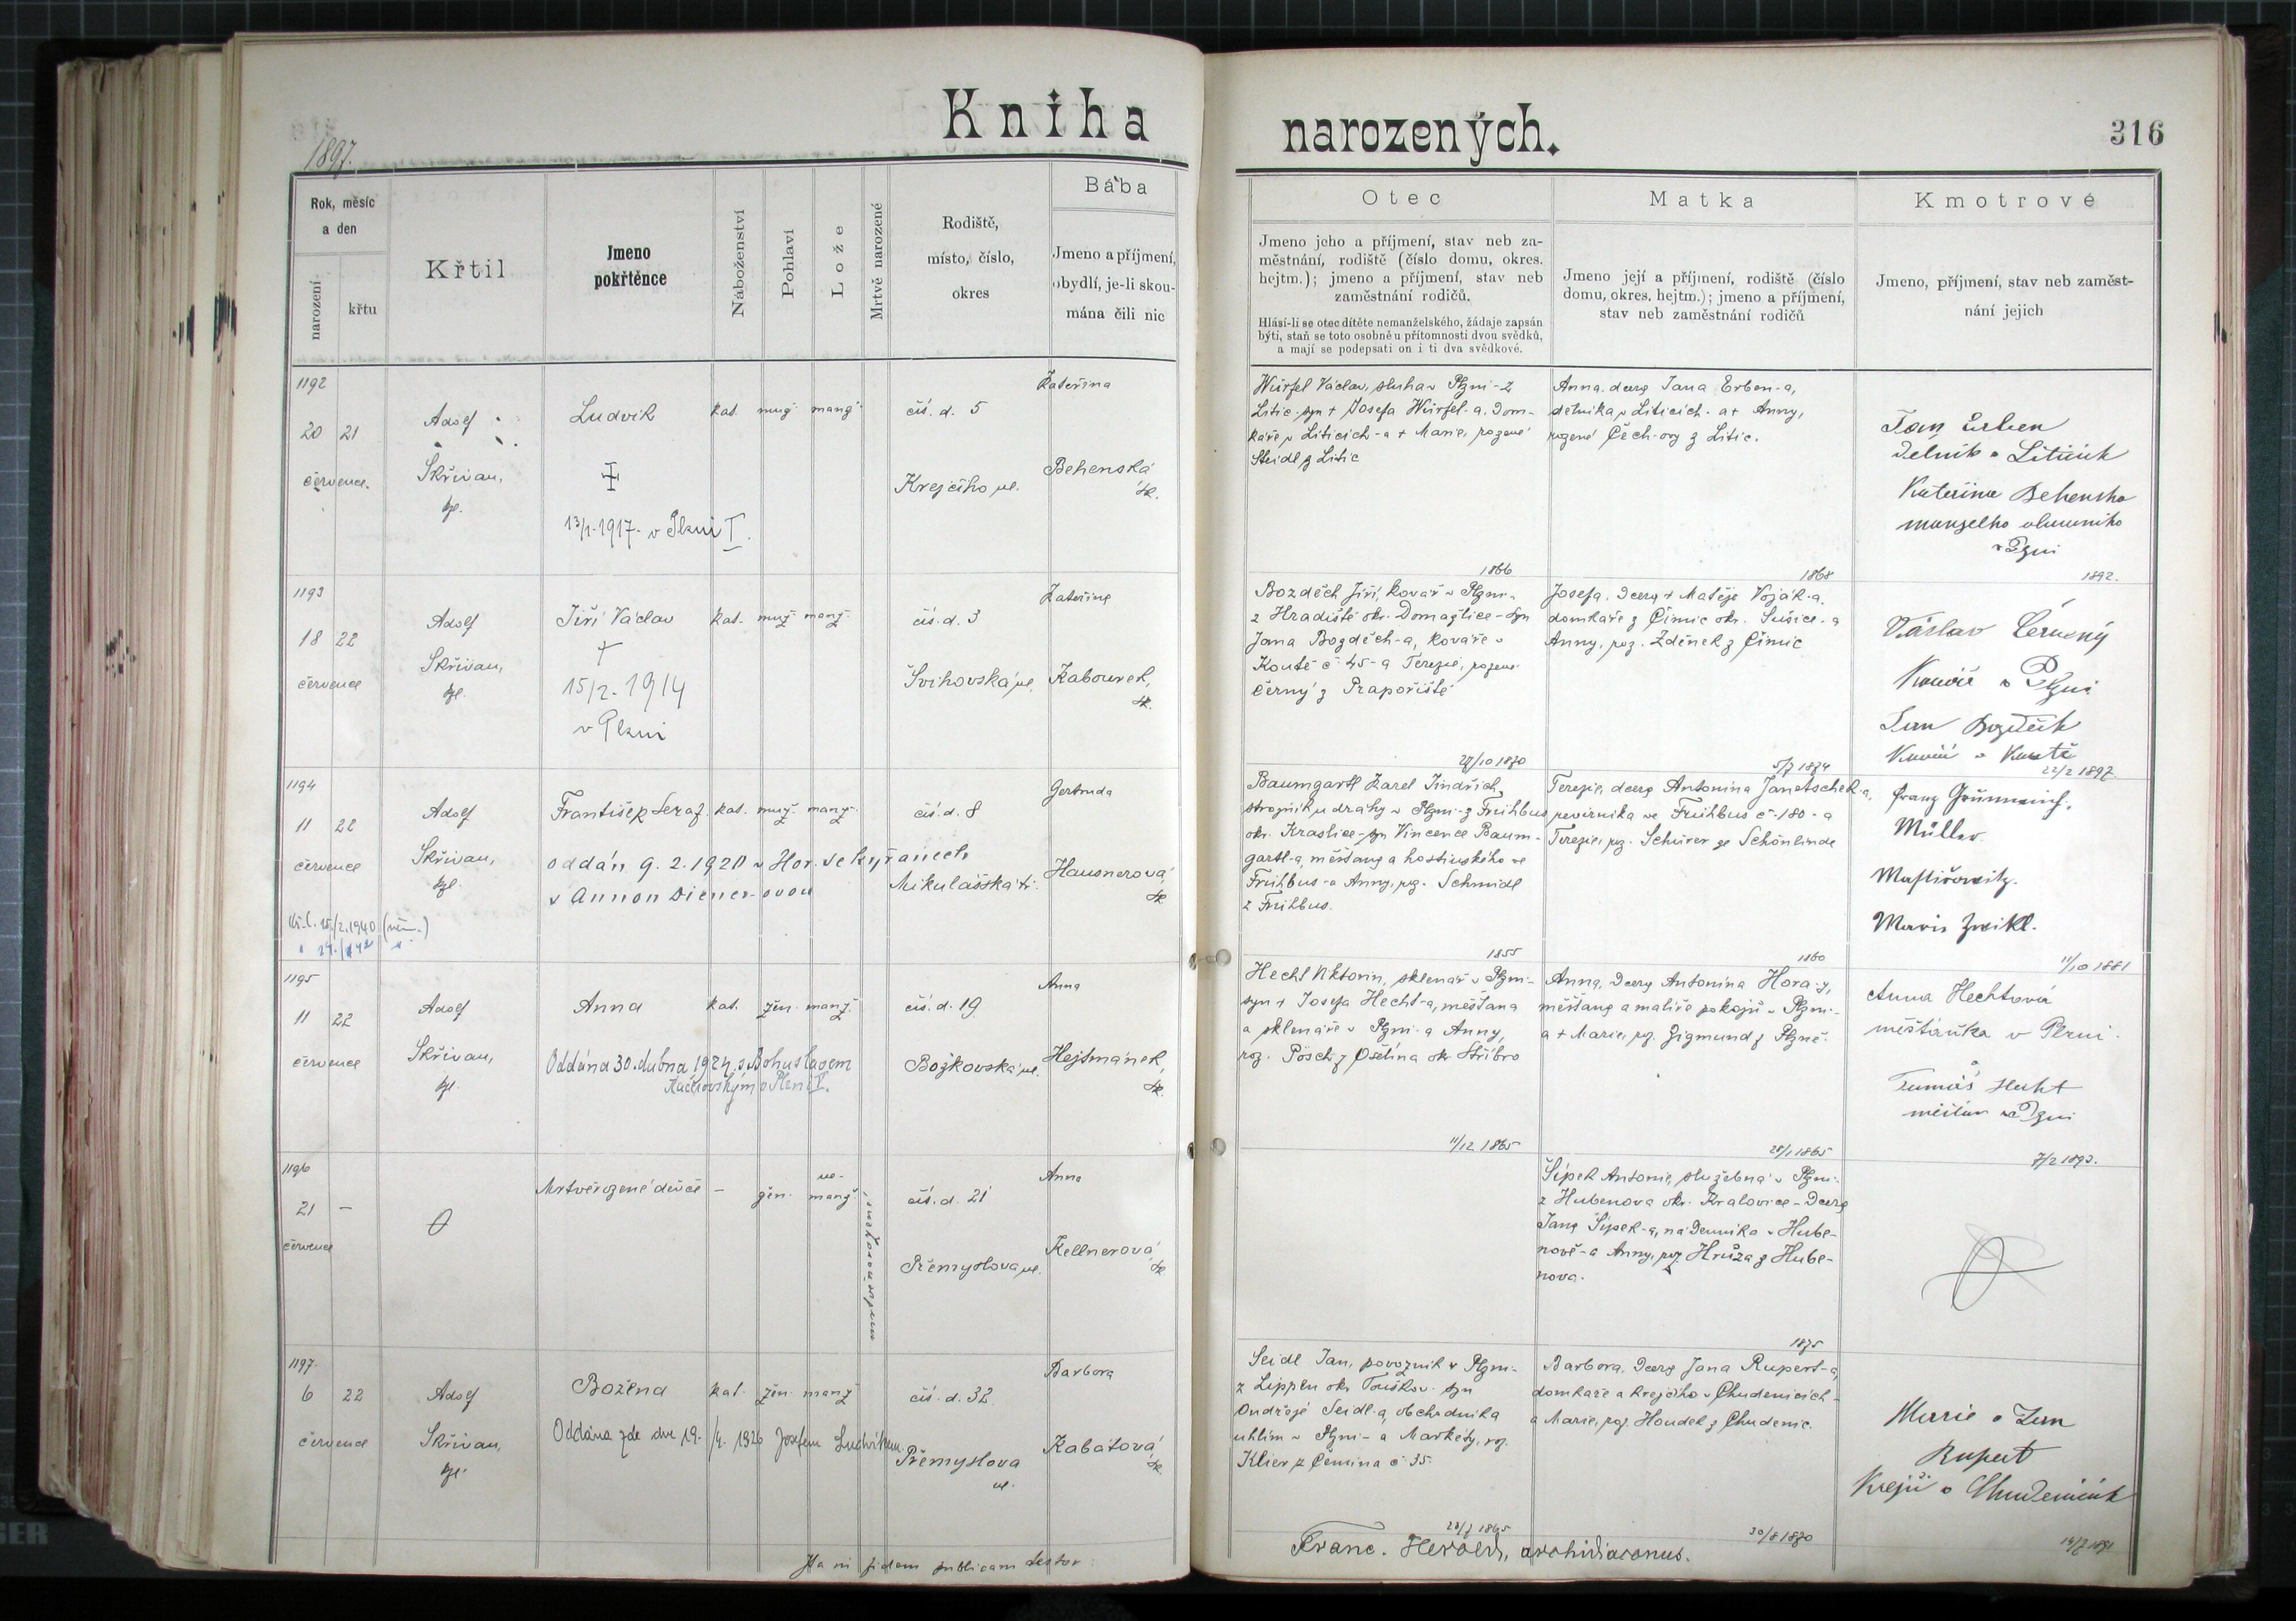 Kniha
narozených.
316
1897.
Rok, měsíc
a den
narození
křtu
Křtil
Jmeno
pokřtěnce
Náboženství
Pohlaví
Lože
Mrtvě narozené
Rodiště,
místo, číslo,
okres
Bába
Jmeno a příjmení,
obydlí, je-li skou-
mána čili nic
Otec
Jmeno jeho a příjmení, stav neb za-
městnání, rodiště (číslo domu, okres.
hejtm.); jmeno a příjmení, stav neb
zaměstnání rodičů.
Hlásí-li se otec dítěte nemanželského, žádaje zapsán
býti, staň se toto osobně u přítomnosti dvou svědků,
a mají se podepsati on i ti dva svědkové.
Matka
Jmeno její a příjmení, rodiště (číslo
domu, okres. hejtm.); jmeno a příjmení,
stav neb zaměstnání rodičů
Kmotrové
Jmeno, příjmení, stav neb zaměst-
nání jejich
1192
20 21
července
Adolf
Škřivan,
kpl.
Ludvík
13/1. 1917. v Plzni I.
kat. muž. manž.
čís. d. 5
Krejčího ul.
Kateřina
Behenská
zk.
Würfel Václav, sluha v Plzni-z
Litic-syn + Josefa Würfel-a, dom-
káře v Liticích-a + Marie, rozené
Steidl z Litic
1866
Anna, dcera Jana Erben-a,
dělníka v Liticích-a + Anny,
rozené Čech-ovy z Litic.
1868
Jan Erben
dělník v Liticích
Kateřina Behenska
v Plzni
1892.
1193
18 22
července
Adolf
Škřivan,
kpl.
Jiří Václav
+
15/2. 1914
v Plzni
kat. muž. manž.
čís. d. 3
Švihovská ul.
Kateřina
Kabourek,
zk.
Bozděch Jiří, kovář v Plzni-
z Hradiště okr. Domažlice-syn
Jana Bozděch-a, kováře v
Koutě č. 45-a Terezie, rozené
Černý z Prapořiště
27/10 1870
Josefa, dcera + Matěje Voják-a,
domkáře z Čimic okr. Sušice-a
Anny, roz. Zděnek z Čimic
5/7 1874
Václav Černý
Kovář v Plzni
Jan Bozděch
Kovář v Koutě
22/2 1897
1194
11 22
července
15/2.1940 (něm.)
Adolf
Škřivan,
kpl.
František Seraf.
oddán 9. 2. 1920 v Hor. Sekyřanech
s Annou Diener-ovou
kat. muž. manž.
čís. d. 8
Mikulášská tř.
Gertruda
Hausnerová
zk.
Baumgartl Karel Jindřich,
strojník u dráhy v Plzni-z Frühbus
okr. Kraslice-syn Vincence Baum-
gartl-a, měšťana a hostinského ve
Frühbus-a Anny, roz. Schmidl
z Frühbus.
1855
Terezie, dcera Antonína Janetschek-a,
revírníka ve Frühbus č. 180-a
Terezie, roz. Schürer ze Schönlinde
1860
Müller
Marie Zwikl.
11/10 1881
1195
11 22
července
Adolf
Škřivan,
kpl.
Anna
Oddána 30. dubna 1924 s Bohuslavem
v Plzni I.
kat. žen. manž.
čís. d. 19
Božkovská ul.
Anna
Hejtmánek,
zk.
Hecht Viktorin, sklenář v Plzni-
syn + Josefa Hecht-a, měšťana
a sklenáře v Plzni-a Anny,
roz. Pösch z Ošelína okr. Stříbro
11/12 1865
Anna, dcera Antonína Hora-y,
měšťana a malíře pokojů v Plzni-
a + Marie, roz. Zigmund z Plzně.
28/1 1865
Anna Hechtová
měšťanka v Plzni.
a
Tomáš Hecht
měšťan v Plzni
7/2 1893.
1196
21 –
července
Mrtvěrozené děvče
–
žen.
ne-
manž.
mrtvě narozené
čís. d. 21
Přemyslova ul.
Anna
Kellnerová
zk.
Šípek Antonie, služebná v Plzni-
z Hubenova okr. Kralovice-dcera
Jana Šípek-a, nádeníka v Hube-
nově-a Anny, roz. Hrůza z Hube-
nova.
1875
1197
6 22
července
Adolf
Škřivan,
kpl.
Božena
Oddána zde dne 19./4. 1926 Josefem Ludvíkem.
kat. žen. manž.
čís. d. 32
Přemyslova
ul.
Barbora
Kabátová
zk.
Seidl Jan, povozník v Plzni-
z Lippen okr. Touškov-syn
Ondřeje Seidl-a, obchodníka
uhlím v Plzni-a Markéty, roz.
Klier z Čemina č. 35.
28/7 1865
Barbora, dcera Jana Rupert-a,
domkáře a krejčího v Chudenicích-
a Marie, roz. Houdek z Chudenic.
30/8 1870
Marie a Jan
Rupert
Krejčí v Chudenicích
Ita in fidem publicam testor:
Franc. Herold, archidiaconus.